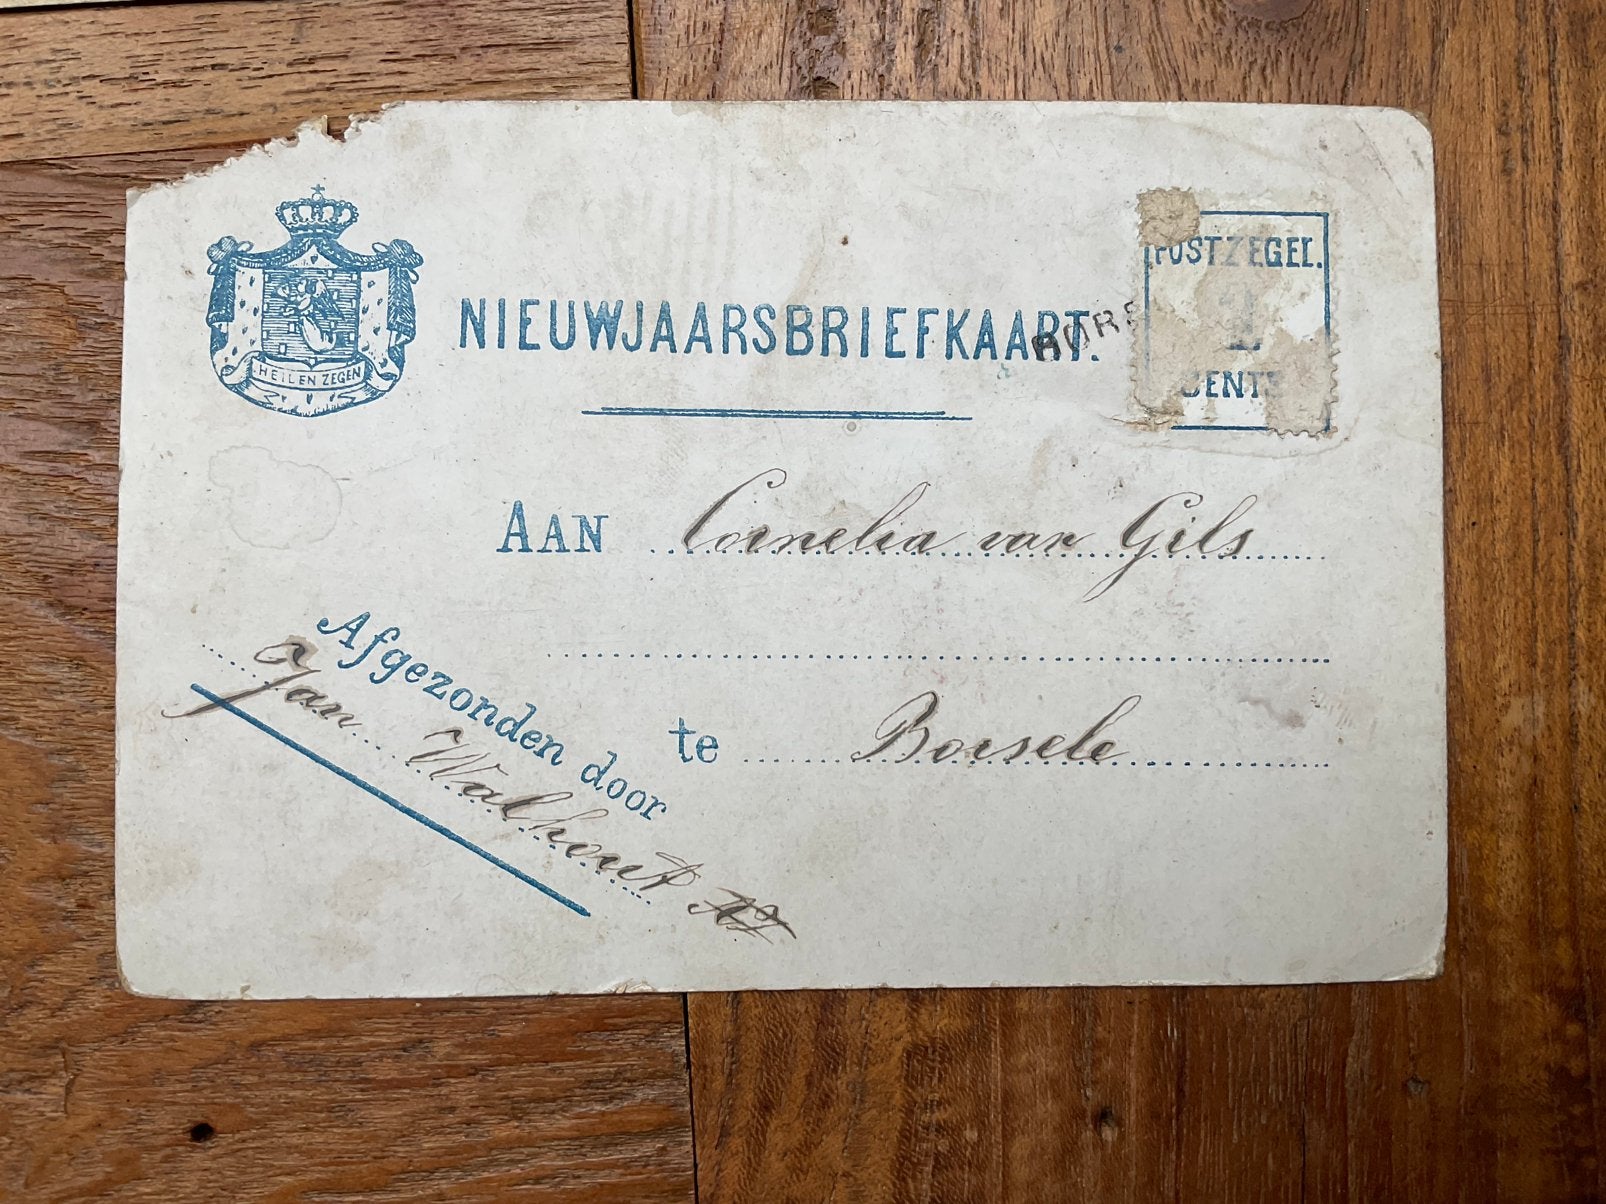 HEIL EN ZEGEN
NIEUWJAARSBRIEFKAART.
BORS
POSTZEGEL.
1
CENTS
AAN Cornelia van Gils
te Borsele
Afgezonden door
Jan Walhout